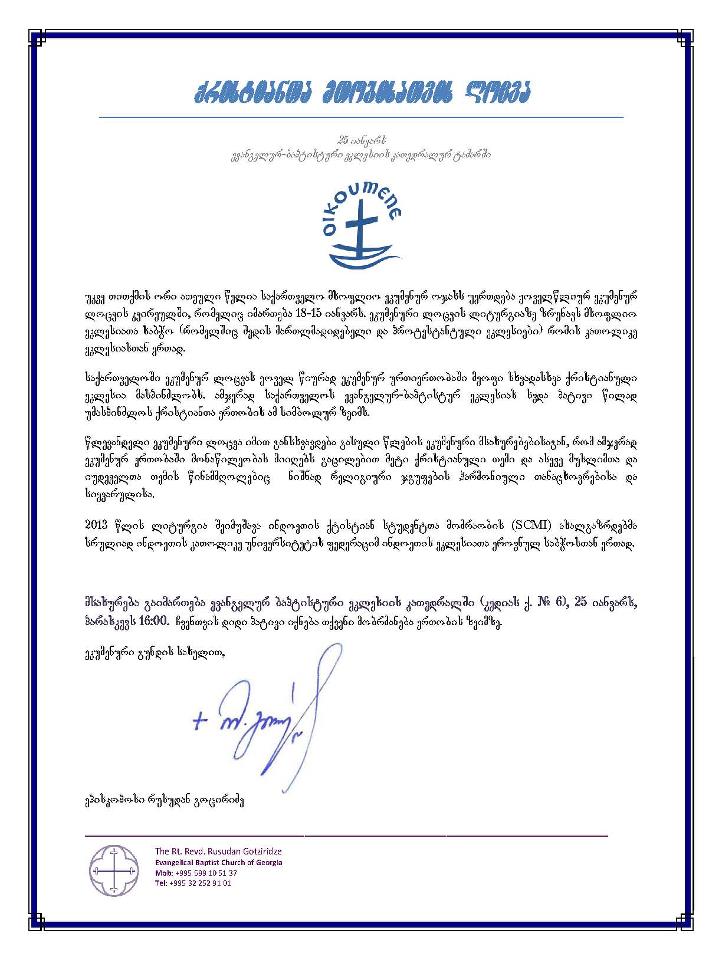 ქრისტიანთა ერთობისათვის ლოცვა
25 იანვარს
ევანგელურ-ბაპტისტური ეკლესიის კათედრალურ ტაძარში
OIKOUMENE
უკვე თითქმის ორი ათეული წელია საქართველო მსოფლიო ეკუმენურ ოჯახს უერთდება ყოველწლიურ ეკუმენურ
ლოცვის კვირეულში, რომელიც იმართება 18-15 იანვარს. ეკუმენური ლოცვის ლიტურგიაზე ზრუნავს მსოფლიო
ეკლესიათა საბჭო (რომელშიც შედის მართლმადიდებელი და პროტესტანტული ეკლესიები) რომის კათოლიკე
ეკლესიასთან ერთად.
საქართველოში ეკუმენურ ლოცვას ყოველ წიურად ეკუმენურ ურთიერთობაში მყოფი სხვადასხვა ქრისტიანული
ეკლესია მასპინძლობს. ამჯერად საქართველოს ევანგელურ-ბაპტისტურ ეკლესიას ხვდა პატივი წილად
უმასპინძლოს ქრისტიანთა ერთობის ამ სიმბოლურ ზეიმს.
წლევანდელი ეკუმენური ლოცვა იმით განსხვავდება გასული წლების ეკუმენური მსახურებებისაგან, რომ ამჯერად
ეკუმენურ ერთობაში მონაწილეობას მიიღებს გაცილებით მეტი ქრისტიანული თემი და ასევე მუსლიმთა და
იუდეველთა თემის წინამძღოლებიც ნიშნად რელიგიური ჯგუფების ჰარმონიული თანაცხოვრებისა და
სიყვარულისა.
2013 წლის ლიტურგია შეიმუშავა ინდოეთის ქტისტიან სტუდენტთა მოძრაობის (SCMI) ახალგაზრდებმა
სრულიად ინდოეთის კათოლიკე უნივერსიტეტის ფედერაციიმ ინდოეთის ეკლესიათა ეროვნულ საბჭოსთან ერთად.
მსახურება გაიმართება ევანგელურ ბაპტისტური ეკლესიის კათედრალში (კედიას ქ. № 6), 25 იანვარს,
პარასკევს 16:00. ჩვენთვის დიდი პატივი იქნება თქვენი მობრძანება ერთობის ზეიმზე.
ეკუმენური გუნდის სახელით,
ეპისკოპოსი რუსუდან გოცირიძე
The Rt. Revd. Rusudan Gotziridze
Evangelical Baptist Church of Georgia
Mob: +995 599 10 51 37
Tel: +995 32 252 91 01